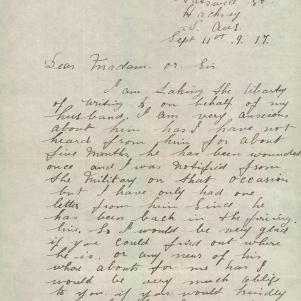 Hackney
S. Aus
Sept 11th. 9. 17.
Dear Madam or Sir
I am taking the liberty
of writing to on behalf of my
husband. I am very anxious
about him has I have not
heard from him for about
five months, he has been wounded
once and I was notified from
the Military on that occasion
but I have only had one
letter from him since he
has been back in the firing
line. So I would be very glad
if you could find out where
he is. or any news of his
whare abouts for me has I
would be very much oblige
to you if you would kindly